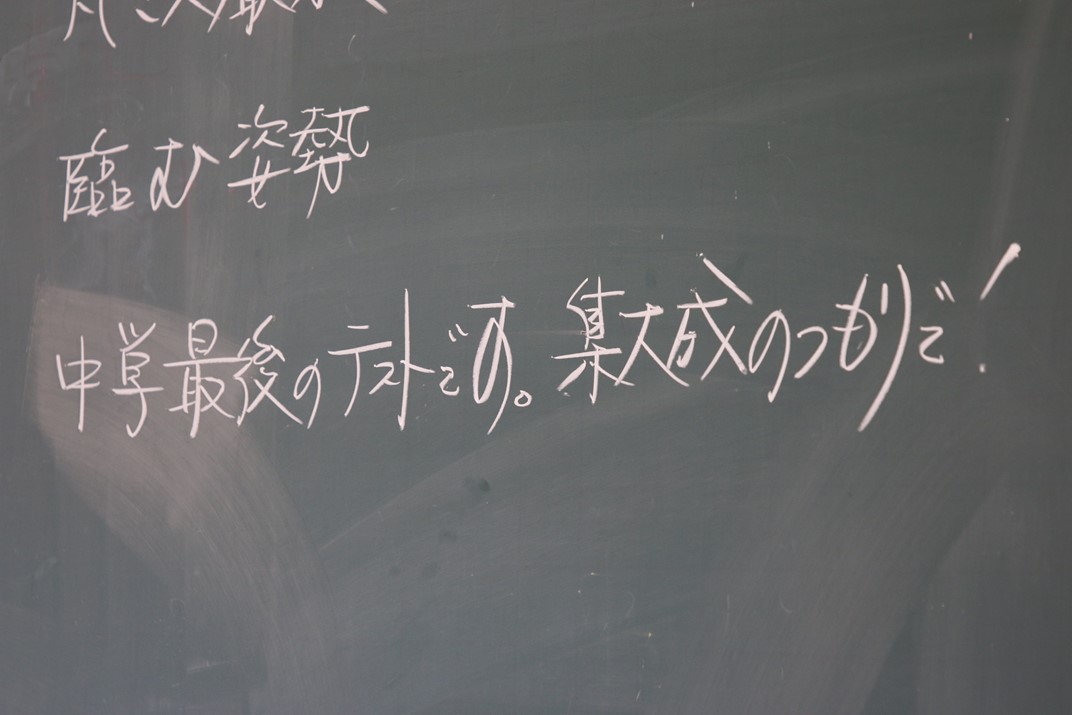 臨む姿勢
中学最後のテストです。集大成のつもりで!